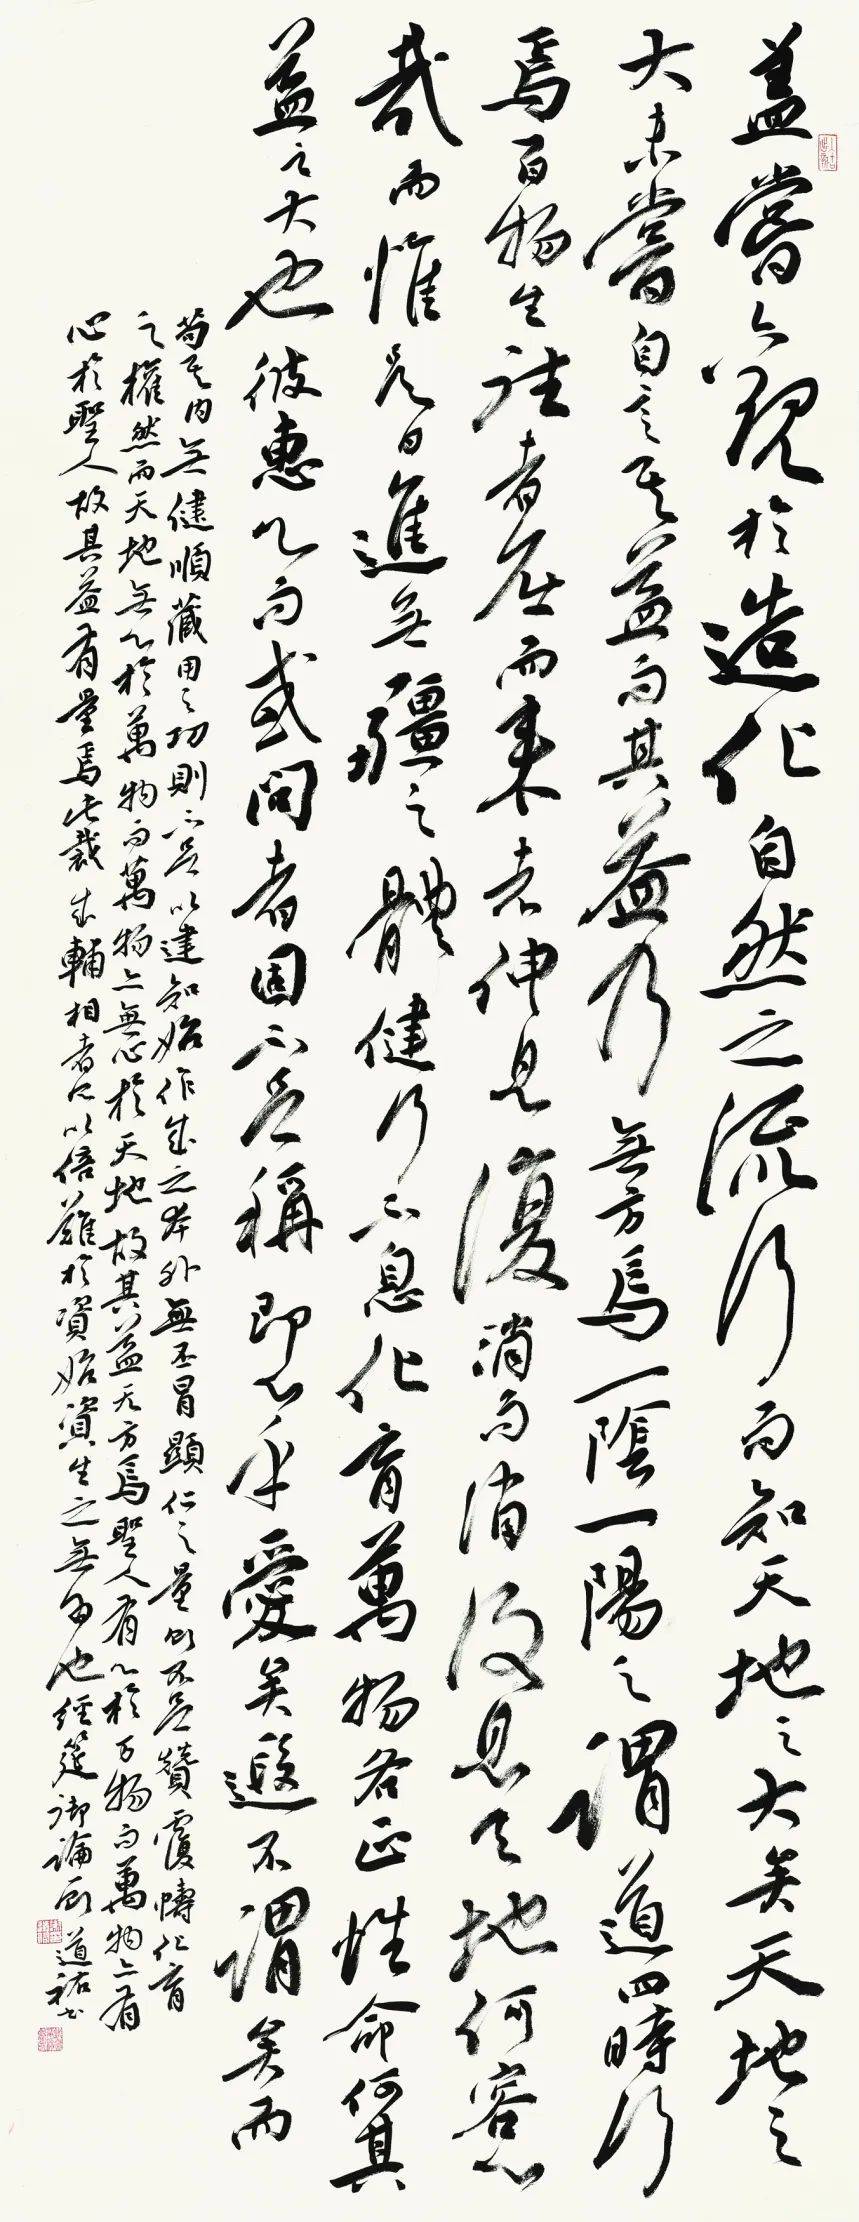 蓋嘗亦觀於造化自然之流行而知天地之大矣天地之
大未嘗自言其益而其益乃無方焉一陰一陽之謂道四時行
焉百物生往者屈而來者伸見復消而消復息天地何容心
哉而惟是日進無疆之體健行不息化育萬物各正性命何其
益之大也彼惠心而或問者固不足稱即心乎愛矣遐不謂矣而
苟其內無健順藏用之功則不足以建知始作成之本外無丕冒顯仁之量則不足贊覆幬化育
之權然而天地無心於萬物而萬物亦無心於天地故其益无方焉聖人有心於万物而萬物亦有
心於聖人故其益有量焉此裁成輔相者所以倍難於資始資生之無為也經筵御論
道祐書